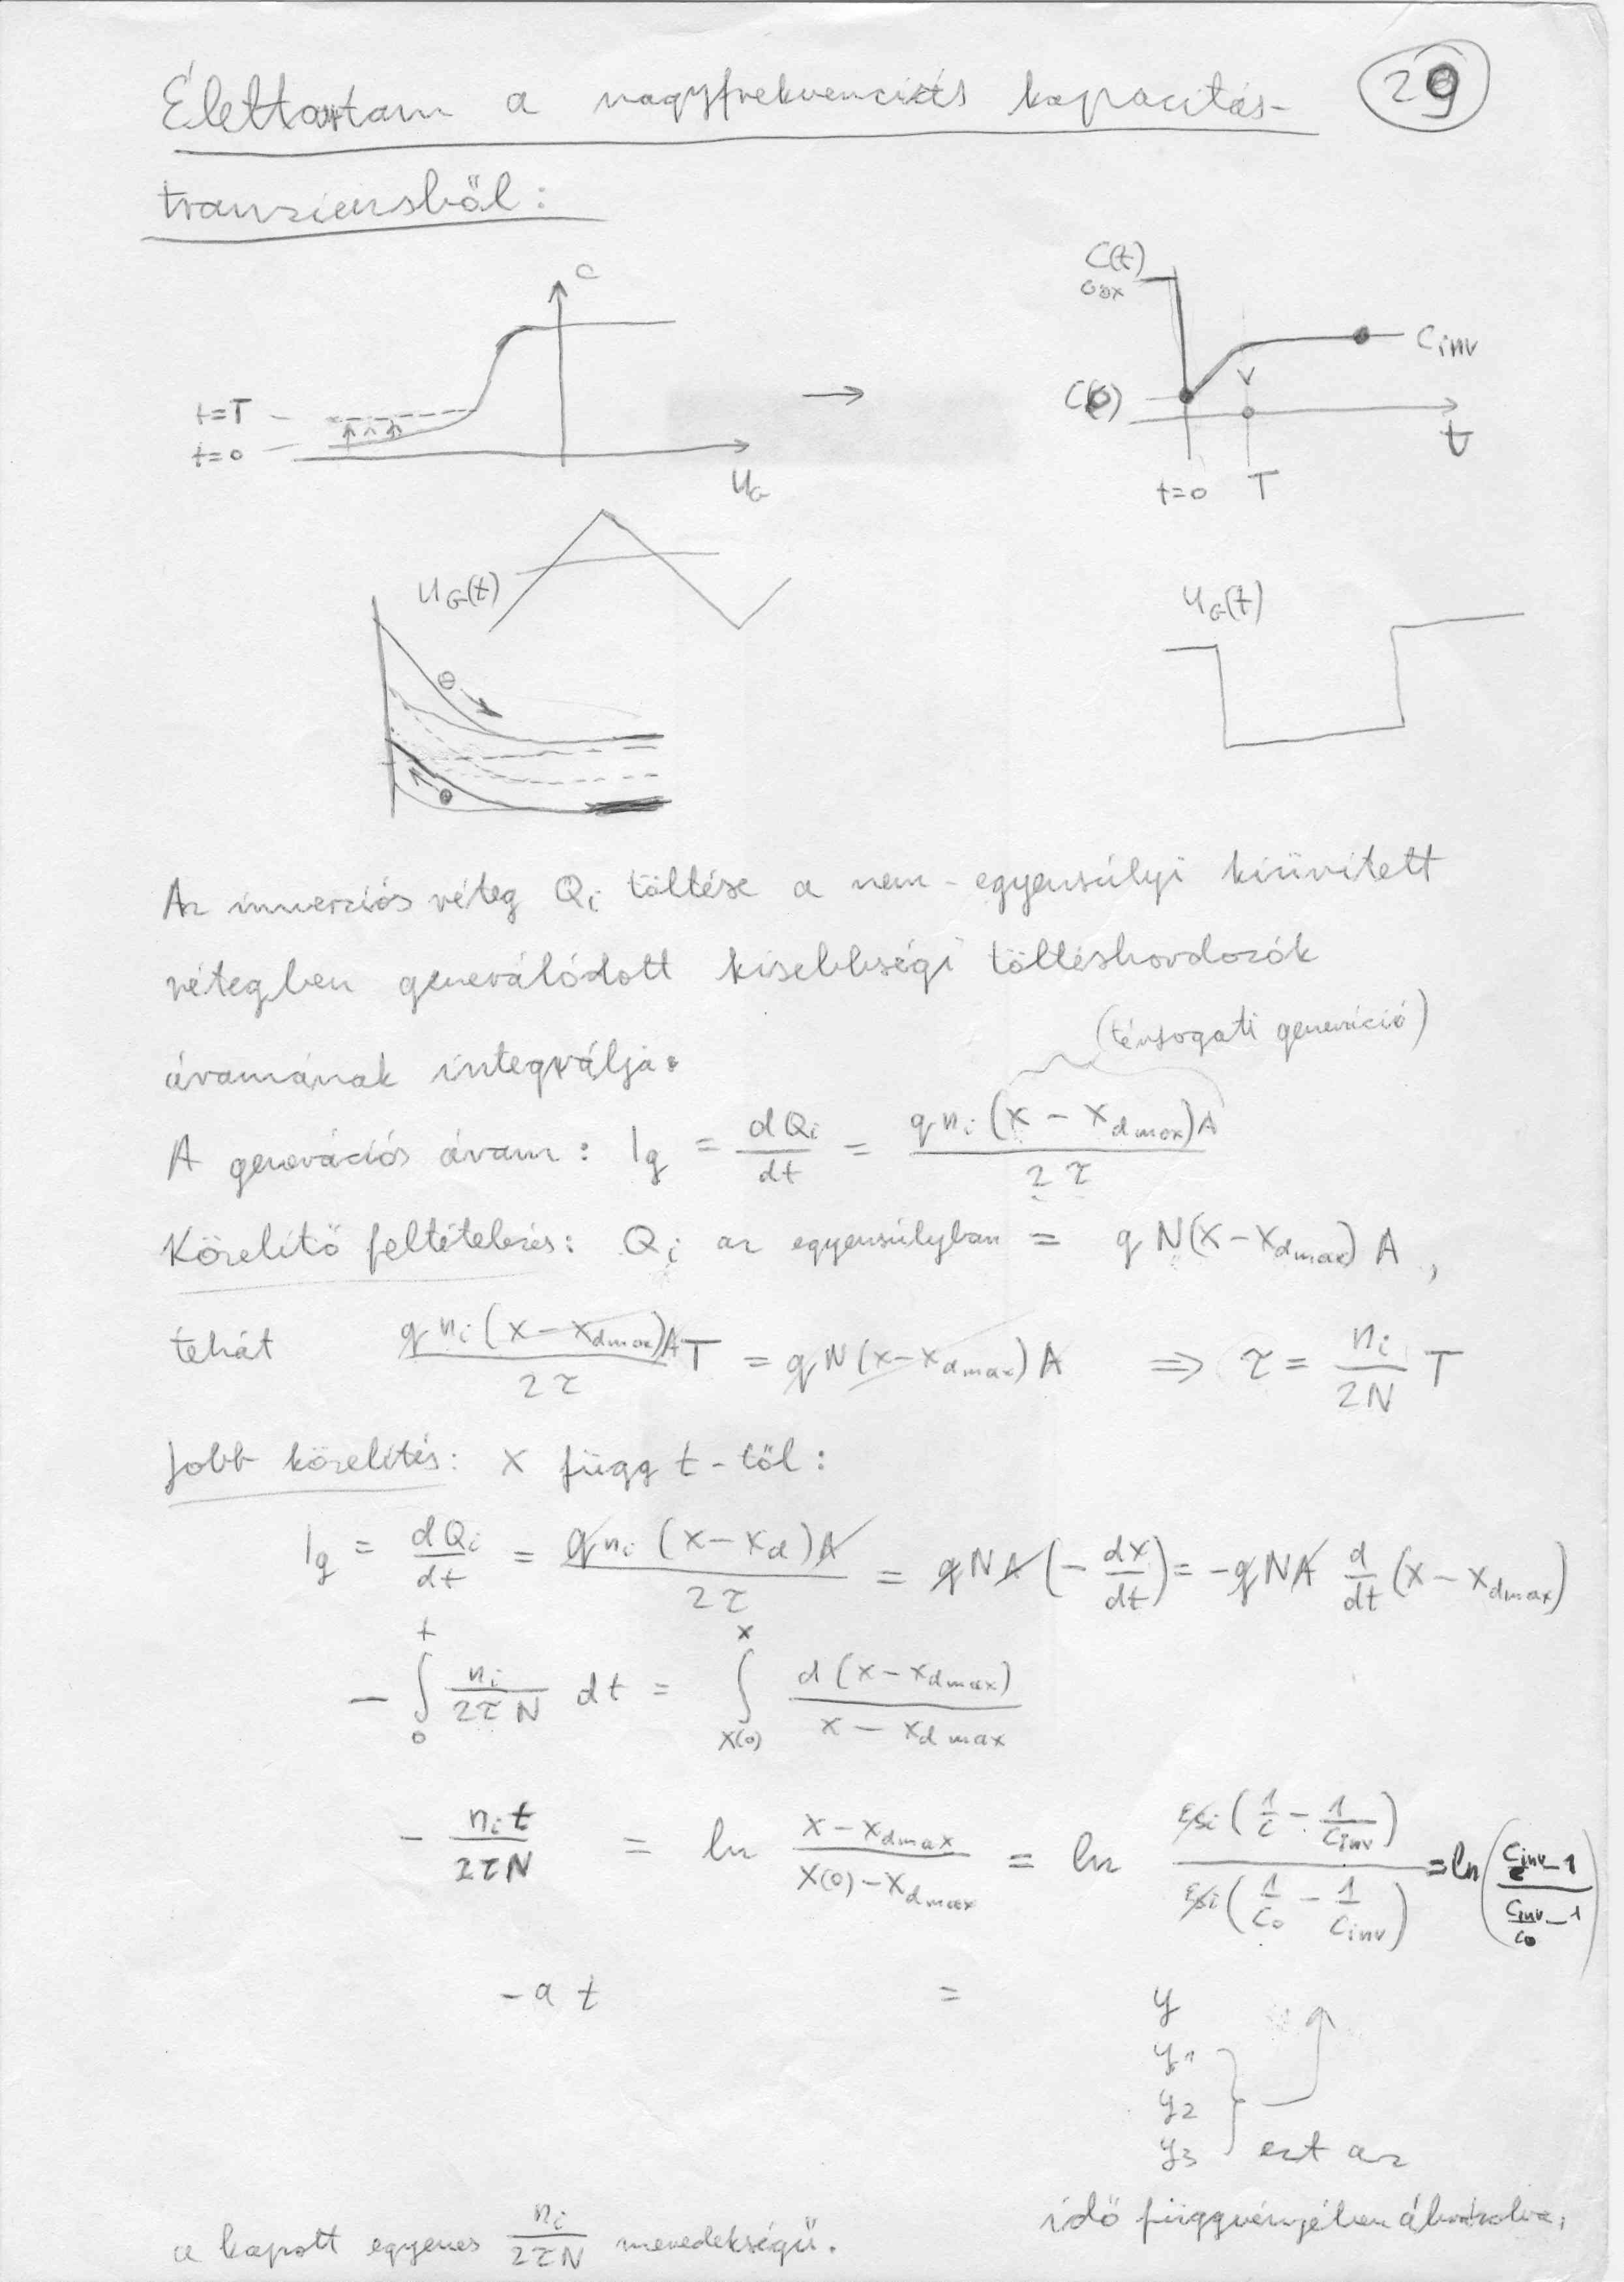 Élettartam a nagyfrekvenciás kapacitás-
29
tranziensből:
C
t=T
t=0
U_G
C(t)
Cox
C(0)
Cinv
t
t=0 T
U_G(t)
U_G(t)
⊖
⊕
Az inverziós réteg Q_i töltése a nem-egyensúlyi kiürített
rétegben generálódott kisebbségi töltéshordozók
(térfogati generáció)
áramának integrálja.
A generációs áram: I_g = dQ_i/dt = q n_i (x − x_dmax)A / 2τ
Közelítő feltételezés: Q_i az egyensúlyban = q N(x−x_dmax) A,
tehát q n_i (x−x_dmax)A / 2τ T = q N (x−x_dmax) A ⇒ τ = n_i/2N T
Jobb közelítés: x függ t-től:
I_g = dQ_i/dt = q n_i (x−x_d)A / 2τ = q N A (− dx/dt) = −q N A d/dt (x−x_dmax)
− ∫_0^t n_i/2τN dt = ∫_x(0)^x d(x−x_dmax) / x − x_dmax
− n_i t/2τN = ln x−x_dmax / x(0)−x_dmax = ln εsi(1/C − 1/Cinv) / εsi(1/C0 − 1/Cinv) = ln(Cinv/C −1 / Cinv/C0 −1)
−a t = y
y1
y2
y3 ezt az
idő függvényében ábrázolva,
a kapott egyenes n_i/2τN meredekségű.